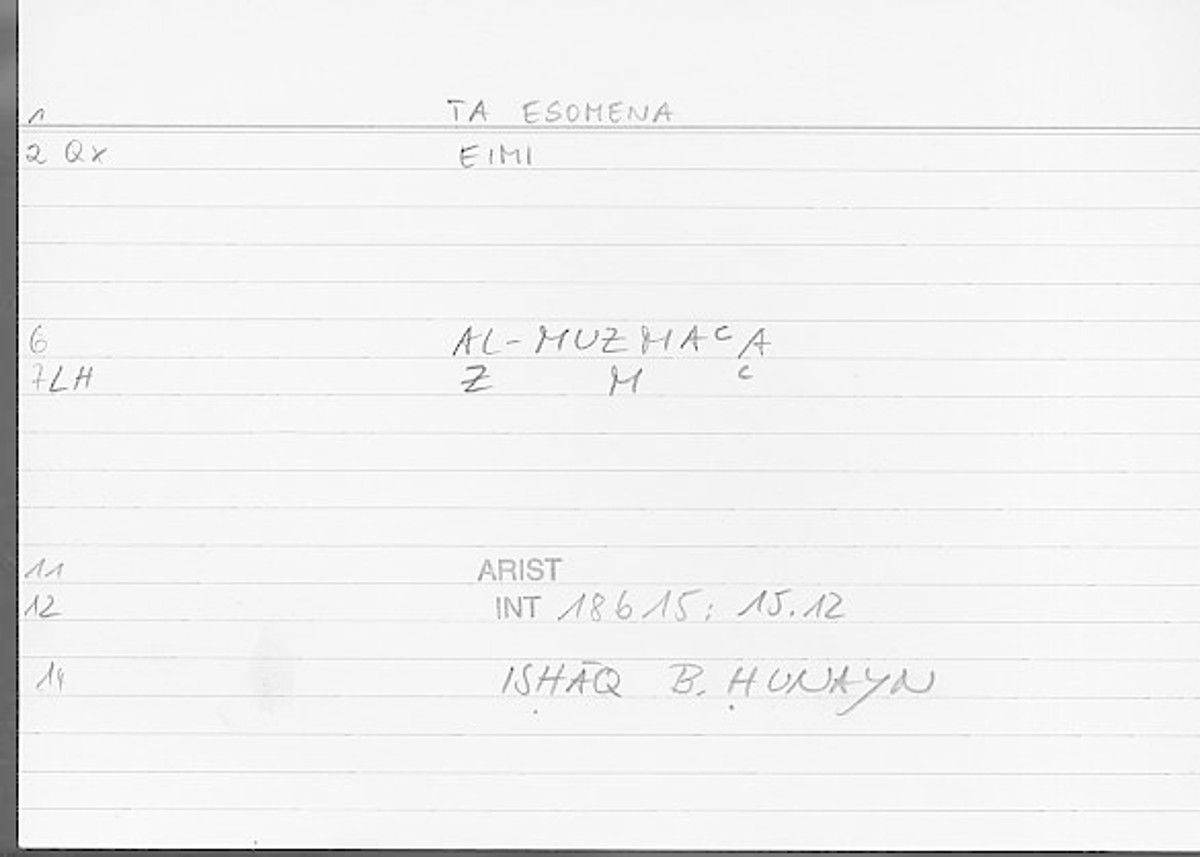 1 TA ESOMENA
2 Qx EIMI
6 AL-MUZMAᶜA
7LH Z M ᶜ
11 ARIST
12 INT 18615; 15.12
14 ISḤĀQ B. ḤUNAYN